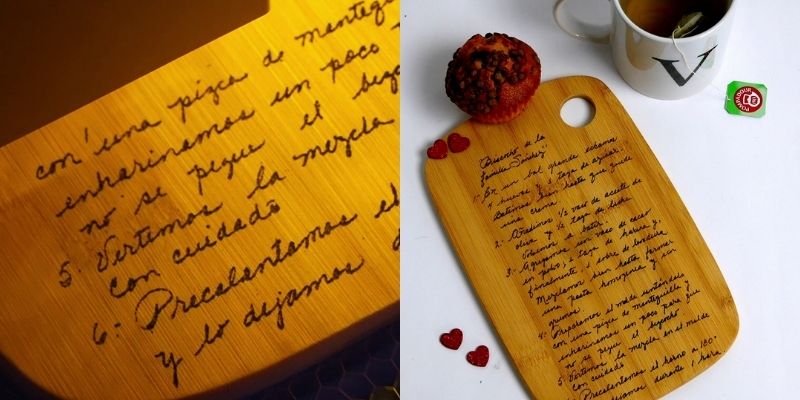 con una pizca de mantequi
enharinamos un poco
no se pegue el bizc
5. Vertemos la mezcla
con cuidado
6- Precalentamos el
y lo dejamos d
V
POMPADOUR
"Bizcocho de la
familia Sanchez"
1- En un bol grande echamos
4 huevos y 1 taza de azucar.
Batemos bien hasta que quede
una crema
2- Añadimos 1/2 vaso de aceite de
oliva y 1/2 taza de leche.
Volvemos a batir
3- Agregamos un vaso de cacao
en polvo, 2 tazas de harina y,
finalmente 1 sobre de levadura
Mezclamos bien hasta formar
una pasta homogenea y sin
grumos
4- Preparamos el molde untandolo
con una pizca de mantequilla y
enharinamos un poco para que
no se pegue el bizcocho
5. Vertemos la mezcla en el molde
con cuidado
Precalentamos el horno a 180°
dejamos durante 1 hora